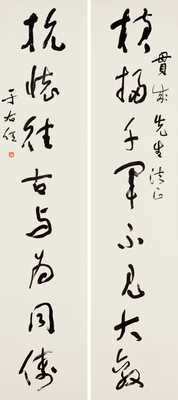 貫先生法正
橫掃千軍不見大敵
抗懷往古与為同儔
于右任